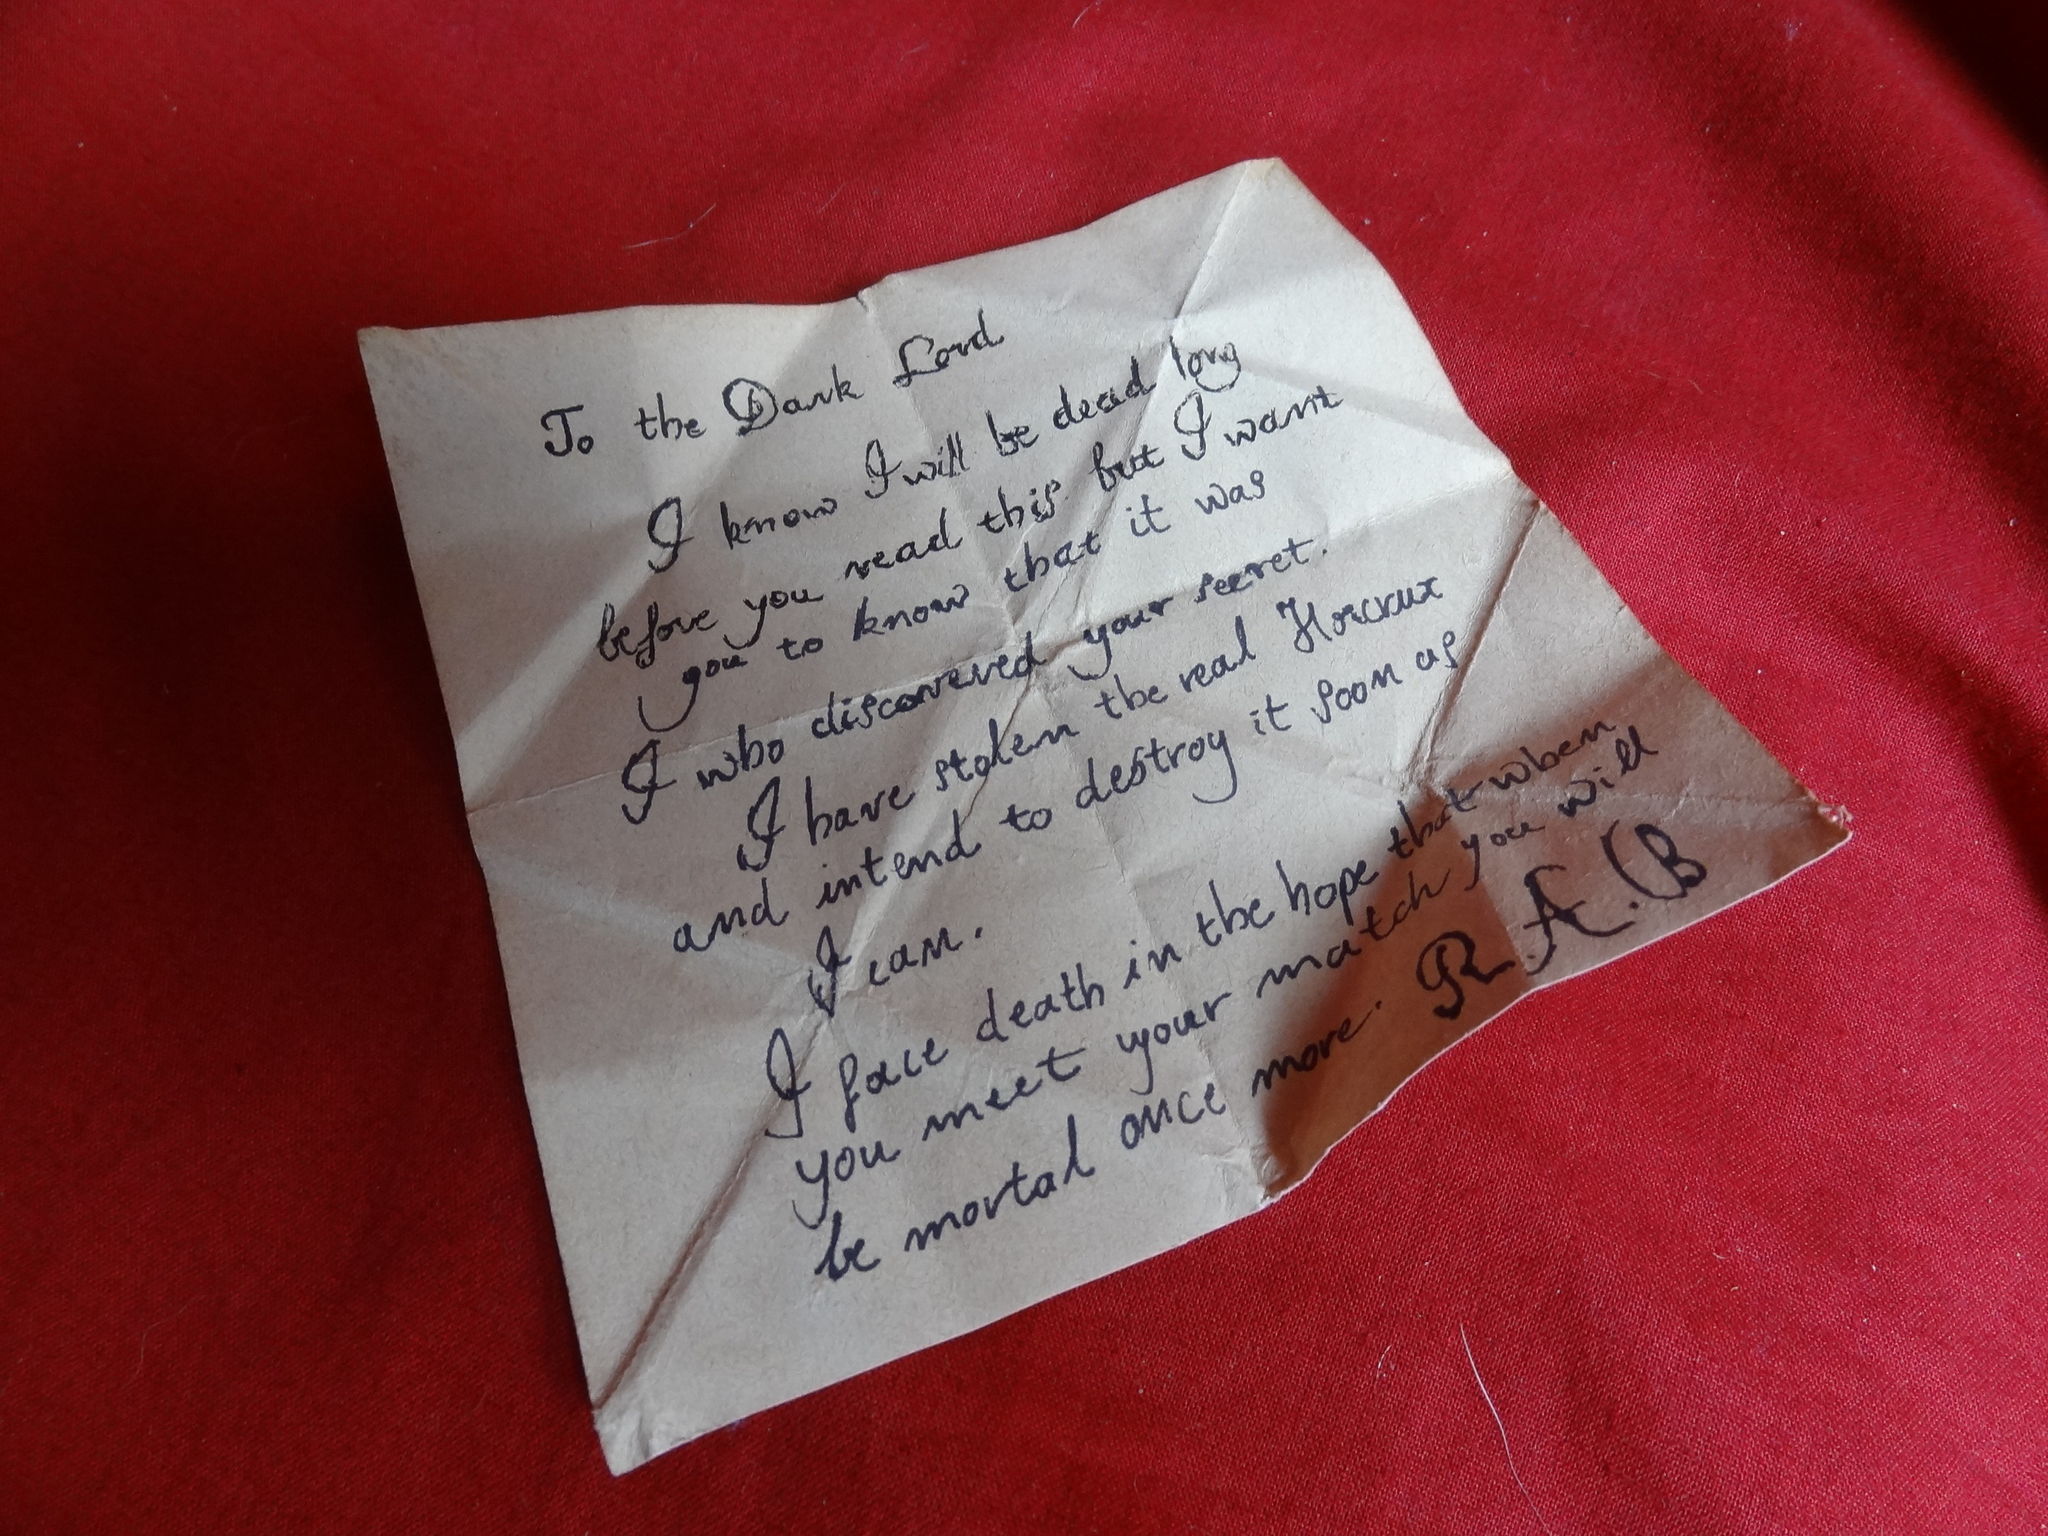 To the Dark Lord
I know I will be dead long
before you read this but I want
you to know that it was
I who discovered your secret.
I have stolen the real Horcrux
and intend to destroy it soon as
I can.
I face death in the hope that when
you meet your match you will
be mortal once more. R.A.B